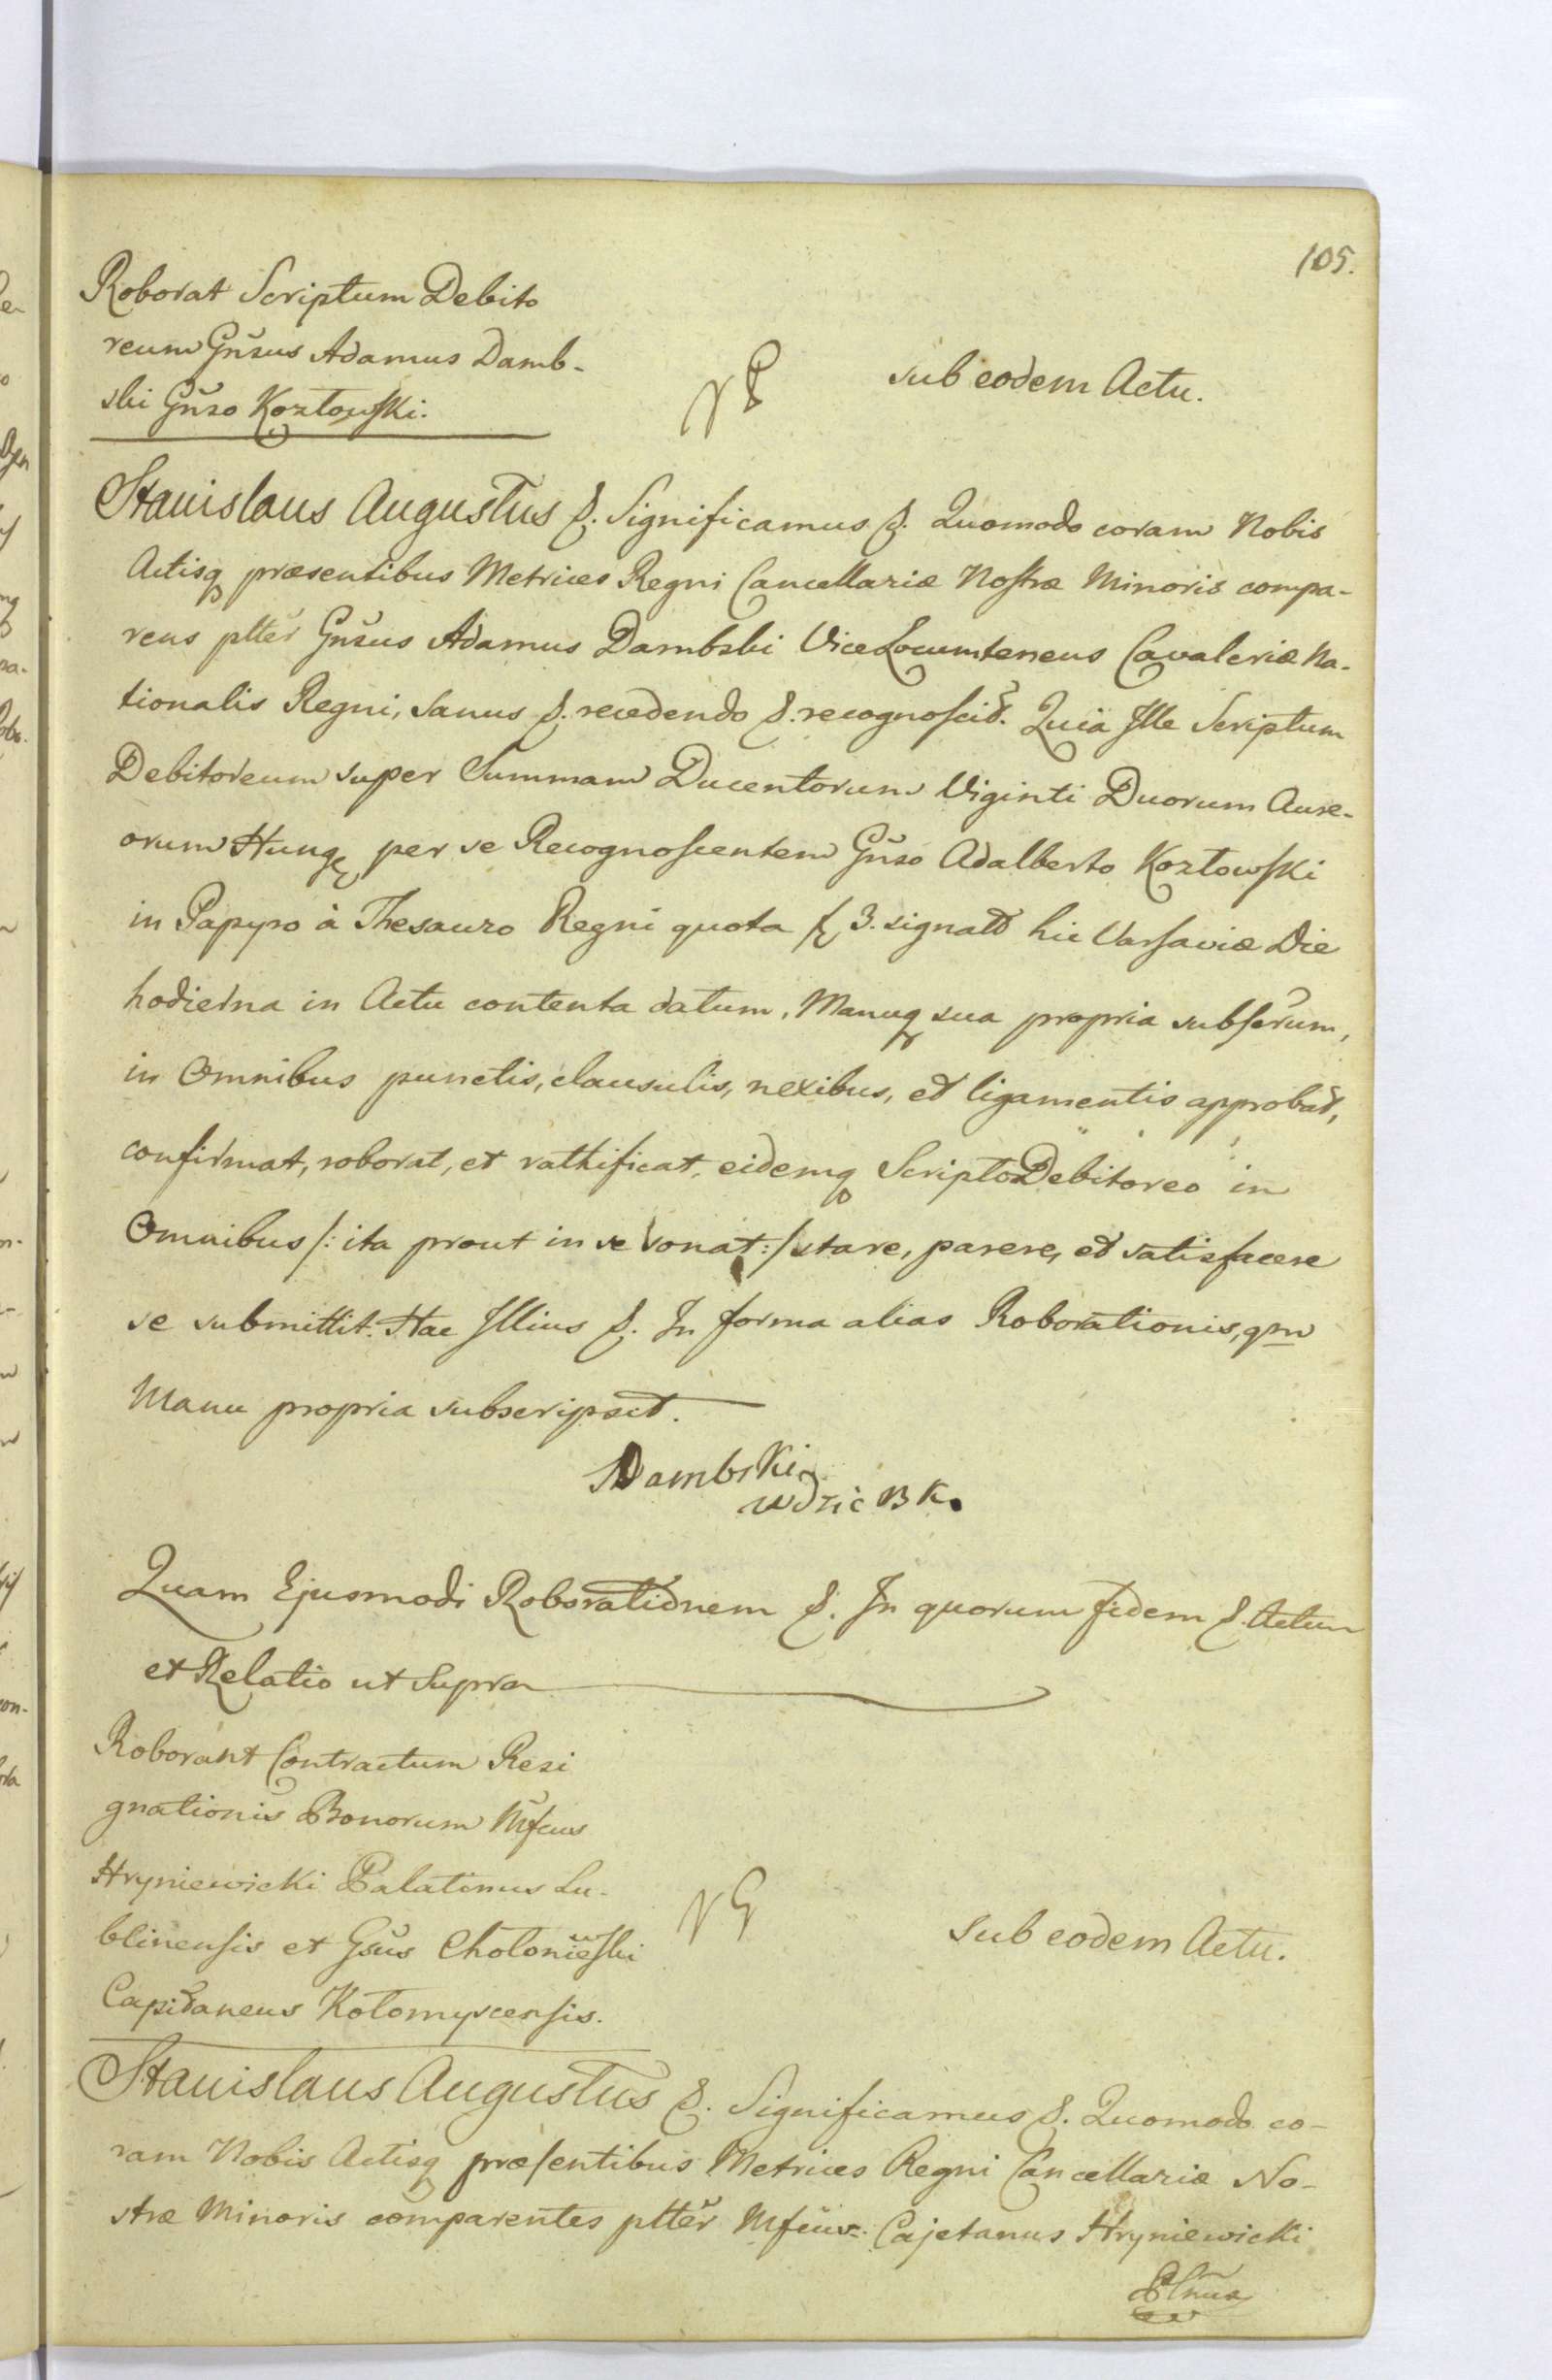 105.
Roborat Scriptum Debito
reum Gnsus Adamus Damb-
ski Gnso Kozłowski.
sub eodem Actu.
Stanislaus Augustus &. Significamus &. Quomodo coram Nobis
Actisq præsentibus Metrices Regni Cancellariæ Nostræ Minoris compa-
rens pltter Gnsus Adamus Dambski ViceLocumtenens Cavaleriæ Na-
tionalis Regni, sanus &. recedendo &. recognoscit. Quia Ille Scriptum
Debitoreum super Summam Ducentorum Viginti Duorum Aure-
orum Hung per se Recognoscentem Gnso Adalberto Kozłowski
in Papyro à Thesauro Regni quota f 3. signatt hic Varsaviæ Die
hodierna in Actu contenta datum, Manuq sua propria subscrum,
in Omnibus punctis, clausulis, nexibus, et ligamentis approbat,
confirmat, roborat, et rathificat, eidemq Scripto Debitoreo in
Omnibus /: ita prout in se sonat :/ stare, parere, et satisfacere
se submittit. Hac Illius &. In forma alias Roborationis, qm
Manu propria subscripsit.
ADambski
BK.
Quam Ejusmodi Roborationem &. In quorum fidem &. Actum
et Relatio ut Supra
Roborant Contractum Resi
gnationis Bonorum Mfcus
Hryniewicki Palatinus Lu-
blinensis et Gsus Chołoniewski
Capitaneus Kołomyscensis.
sub eodem Actu.
Stanislaus Augustus &. Significamus &. Quomodo co-
ram Nobis Actisq præsentibus Metrices Regni Cancellariæ No-
stræ Minoris comparentes pltter Mfcus Cajetanus Hryniewicki
Plnus